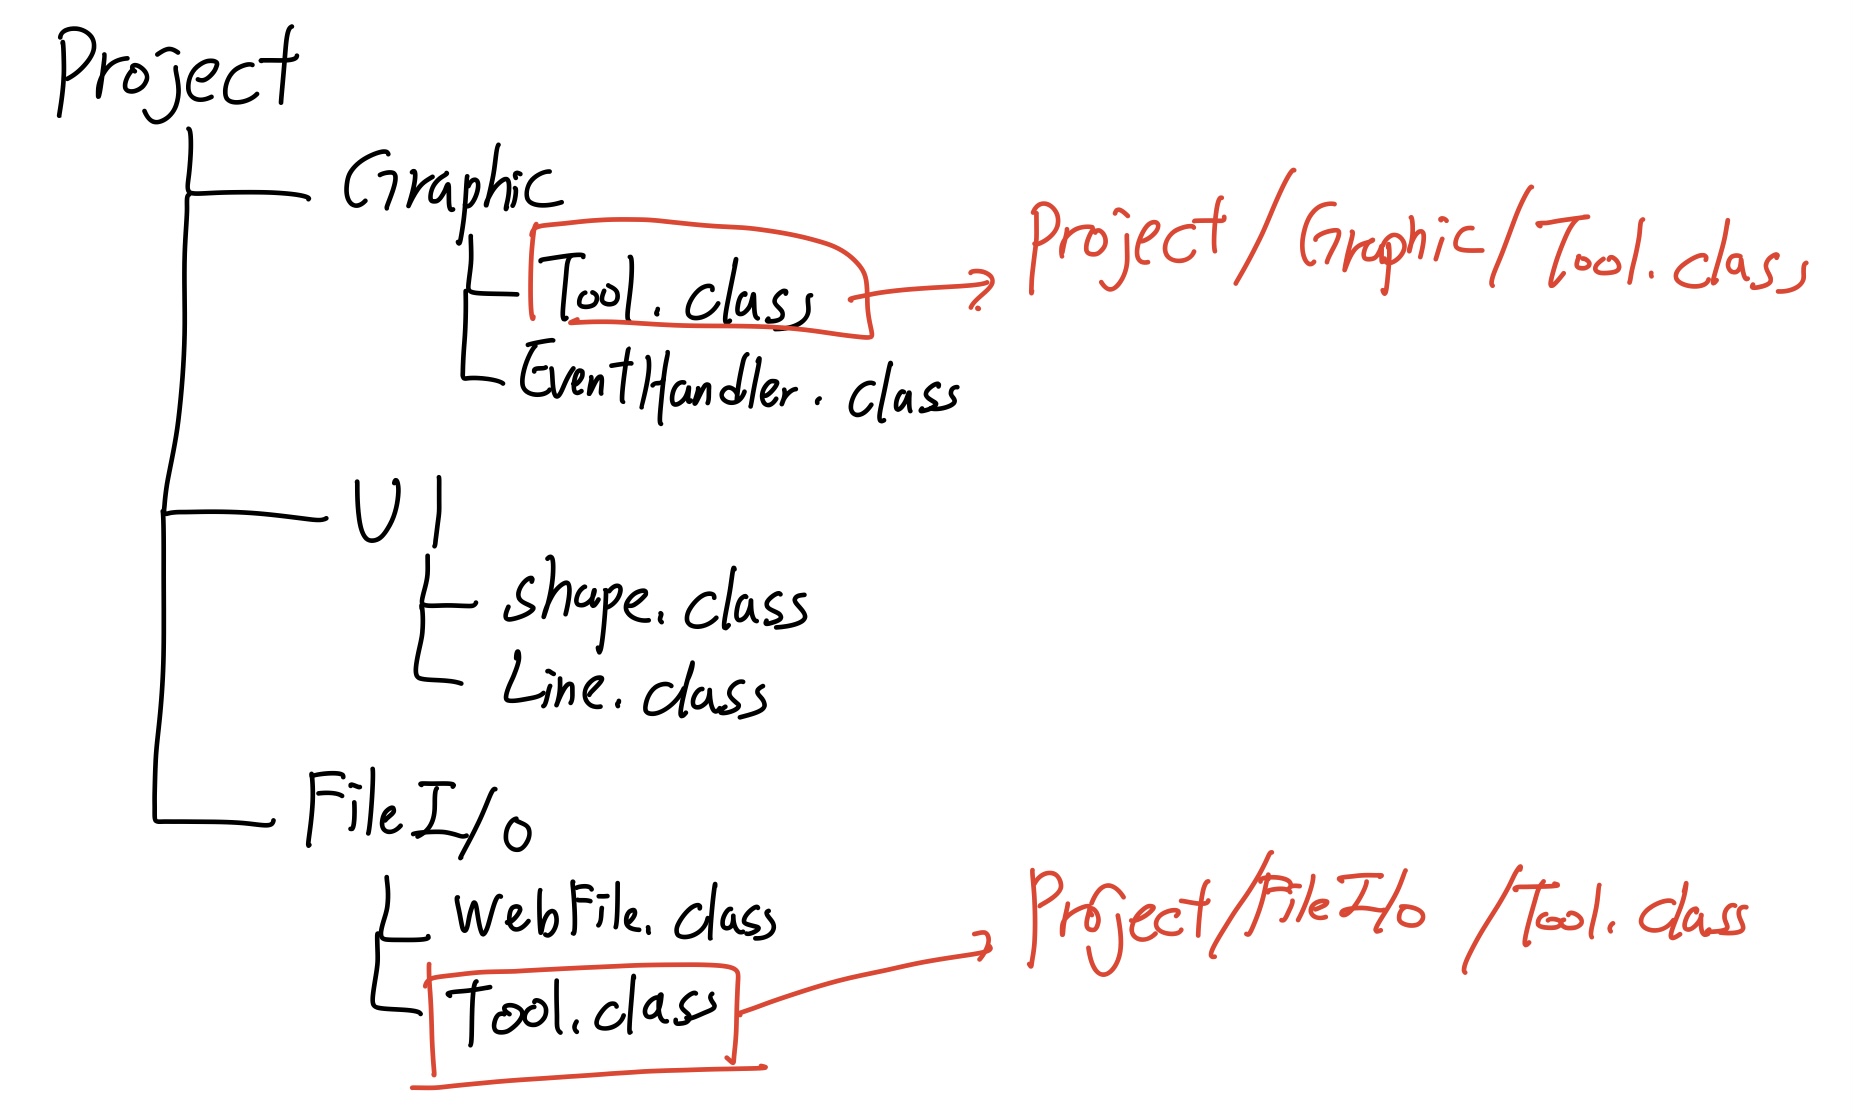 Project
Graphic
Tool.class
Project/Graphic/Tool.class
EventHandler.class
UI
shape.class
Line.class
FileI/o
WebFile.class
Project/FileI/o/Tool.class
Tool.class